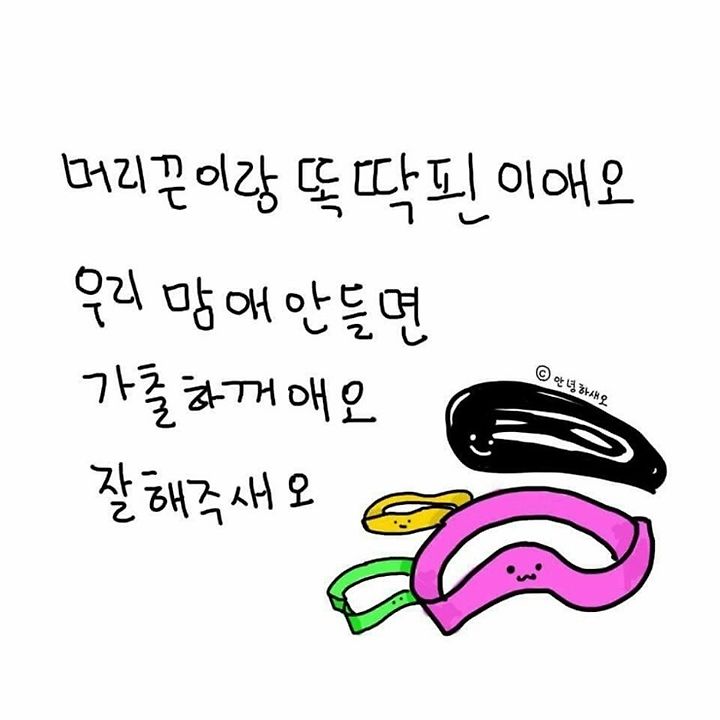 머리끈이랑 똑딱핀이애오
우리 맘애안들면
가출하꺼애오
잘해주새오
ⓒ안녕하새오